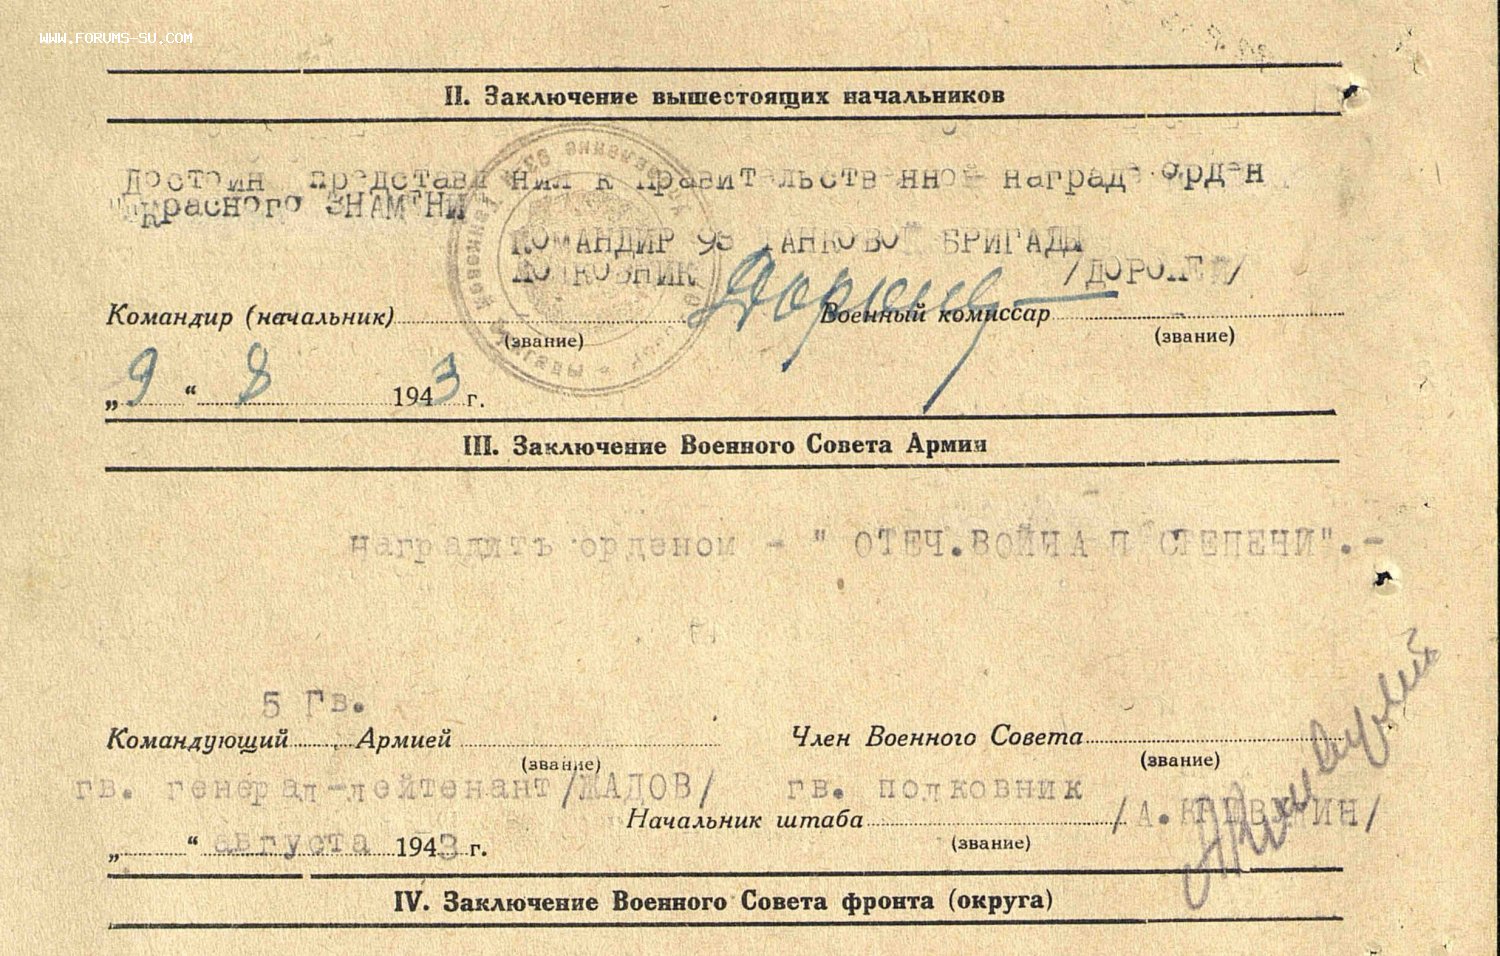 WWW.FORUMS-SU.COM
II. Заключение вышестоящих начальников
Достоин представления к правительственной награде орден
"Красного ЗНАМЕНИ
КОМАНДИР 93 ТАНКОВОЙ БРИГАДЫ
ПОЛКОВНИК /ДОРОПЕЙ/
Командир (начальник) Военный комиссар
(звание) (звание)
„9“ 8 1943 г.
III. Заключение Военного Совета Армии
наградить орденом - " ОТЕЧ.ВОЙНА П СТЕПЕНИ".-
5 Гв.
Командующий Армией Член Военного Совета
(звание) (звание)
гв. генерал-лейтенант /ЖАДОВ/ гв. полковник
Начальник штаба /А.КРИВУЛИН/
„ “ августа 1943 г. (звание)
IV. Заключение Военного Совета фронта (округа)